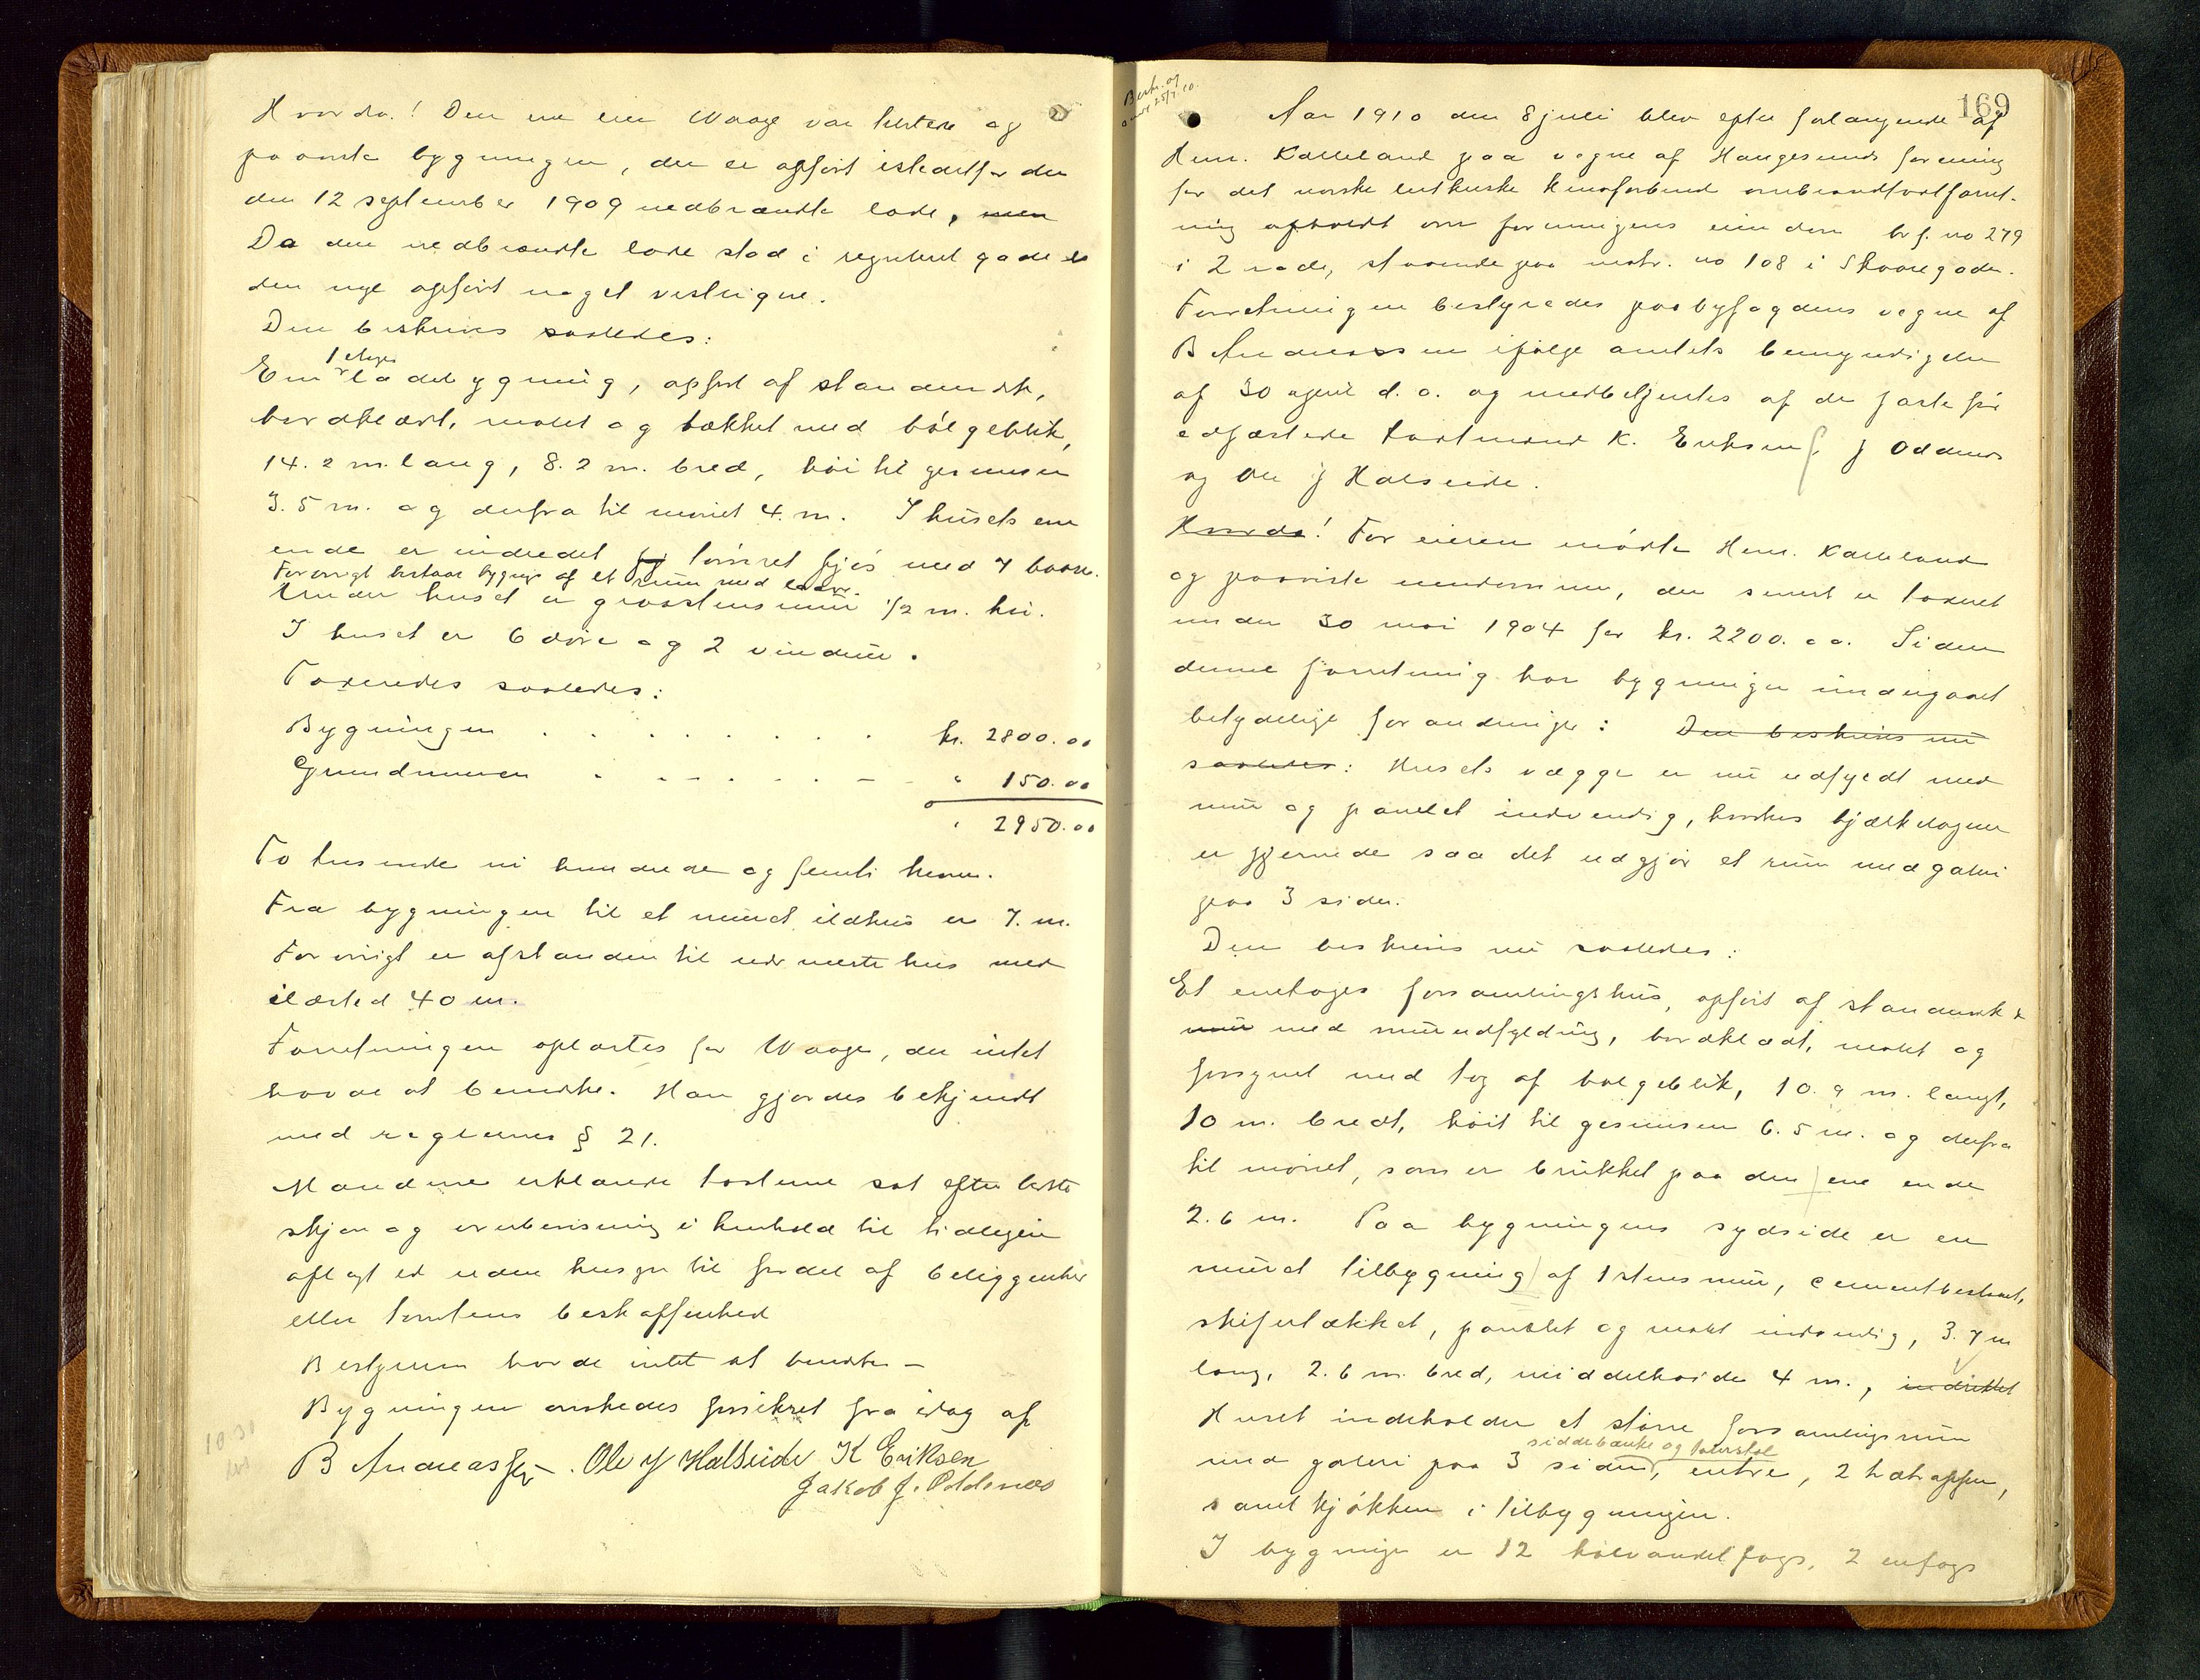 Hvorda! Den ene eier Waage var tilstede og
paaviste bygningen, der er opført istedetfor den
den 12 september 1909 nedbrændte lade, men
Da den nedbrændte lade stod i reguleret gade er
den nye opført noget vestligere.
Den beskrives saaledes:
1 etages
En ladebygning, opført af standerverk,
bordklædt, malet og tækket med bølgeblik,
14.2 m. lang, 8.2 m. bred, høi til gesimsen
3.5 m. og derfra til mønet 4. m. I husets ene
ende er indredet fj tømret fjøs med 7 baase.
Forøvrigt bestaar bygnge af et rum med lader.
Under huset er graastensmur 1/2 m. høi.
I huset er 6 døre og 2 vinduer.
Taxeredes saaledes:
Bygningen . . . . . . . . kr. 2800.00
Grundmuren . . . . . . - " 150.00
" 2950.00
To tusende ni hundrede og femti kroner.
Fra bygningen til et muret ildhus er 7. m.
Forøvrigt er afstanden til nærmeste hus med
ildsted 40 m.
Forretningen oplæstes for Waage, der intet
havde at bemerke. Han gjordes bekjendt
med reglernes § 21.
Mændene erklærede taxterne sat efter bedste
skjøn og overbevisning i henhold til tidligere
aflagt ed uden hensyn til fordel af beliggenhed
eller tomtens beskaffenhed
Bestyreren havde intet at bemerke –
Bygningen ønskedes forsikret fra idag af
B Andreassen. Ole J Halseide K Eriksen
Jakob J. Oddenæs
10 30
169
Aar 1910 den 8 juli blev efter forlangende af
Henr. Kalleland paa vegne af Haugesunds forening
for det norske lutherske kinaforbund ombrandtaxtforret-
ning afholdt over foreningens eiendom br.f. no 279
i 2 rode, staaende paa matr. no 108 i Skaaregaden.
Forretningen bestyredes paa byfogdens vegne af
B Andreassen ifølge amtets bemyndigelse
af 30 april d. a. og medbetjentes af de faste før
edfæstede taxtmænd K. Eriksen, J Oddenæs
og Ole J Halseide.
Hvorda! For eieren mødte Henr. Kalleland
og paaviste eiendommen, der senest er taxeret
under 30 mai 1904 for kr. 2200.00. Siden
denne forretning har bygningen undergaaet
betydelige forandringer: Den beskrives nu
saaledes: Husets vægge er nu udfyldt med
mur og panelet indvendig, hvorhos bjælkelagene
er fjernede saa det udgjør et rum med galleri
paa 3 sider.
Den beskrives nu saaledes:
Et enetages forsamlingshus, opført af standerverk
mur med murudfyldning, bordklædt, malet og
forsynet med tag af bølgeblik, 10.9 m. langt,
10 m. bredt, høit til gesimsen 6.5 m. og derfra
til mønet, som er brukket paa den ene ende
2.6 m. Paa bygningens sydside er en
muret tilbygning af 1 stens mur, cementbestrøget,
skifertækket, panelet og malet indvendig, 3.7 m
lang, 2.6 m. bred, middelhøide 4 m., indrettet
Huset indeholder et større forsamlingsrum
siddebænke og talerstol
med galleri paa 3 sider, entre, 2 trætrapper,
samt kjøkken i tilbygningen.
I bygningen er 12 halvandetfags, 2 enfags